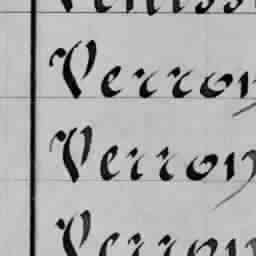 Verron
Verron
Verron